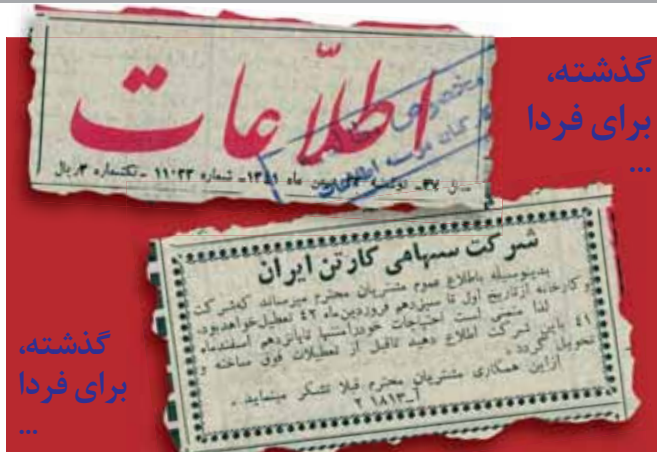 گذشته،
برای فردا
...
اطلاعات
دوشنبه ماه ۱۳۴۱ـ شماره ۱۱۰۲۳ ـ تکشماره ۳ ریال
شرکت سهامی کارتن ایران
بدینوسیله باطلاع عموم مشتریان محترم میرساند که شرکت
و کارخانه از تاریخ اول تا سیزدهم فروردین ماه ۴۲ تعطیل خواهد بود.
لذا متمنی است احتیاجات خود را منتها تا پانزدهم اسفند ماه
۴۱ باین شرکت اطلاع دهید تا قبل از تعطیلات فوق ساخته و
تحویل گردد.
از این همکاری مشتریان محترم قبلا تشکر مینماید.
آـ۱۸۱۳ ۲
گذشته،
برای فردا
...